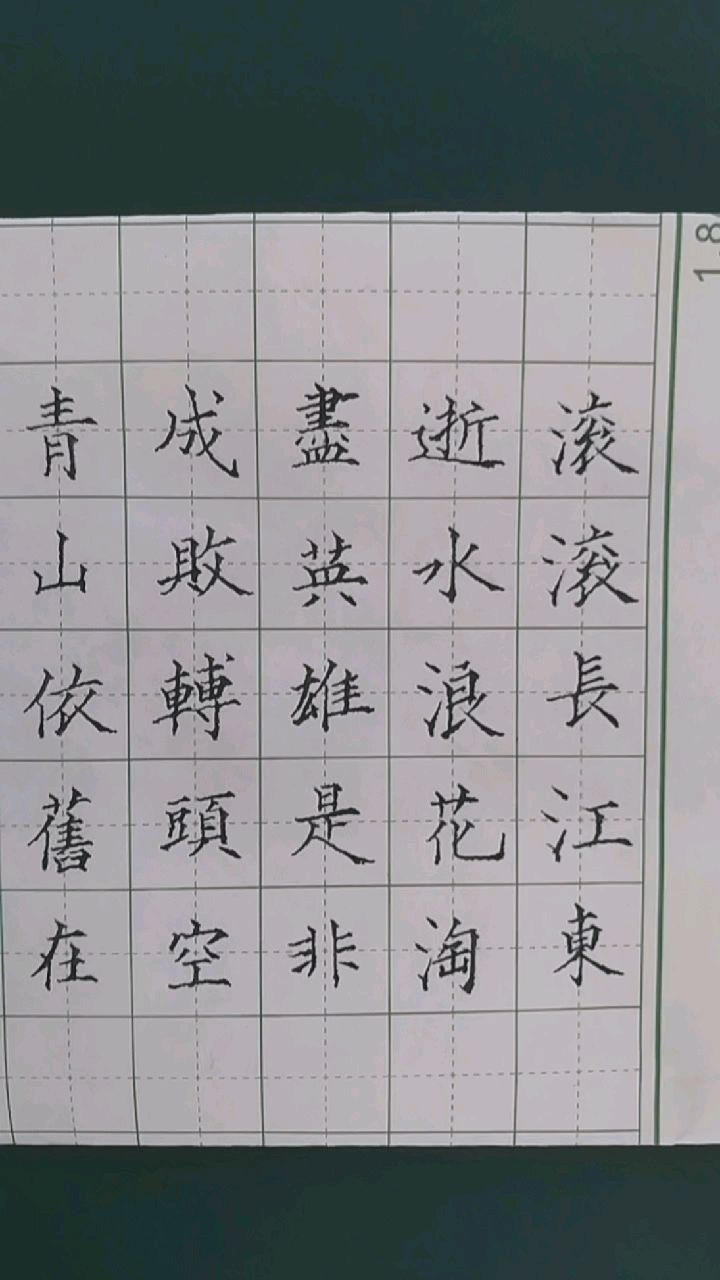 滚滚長江東
逝水浪花淘
盡英雄是非
成敗轉頭空
青山依舊在
1.8